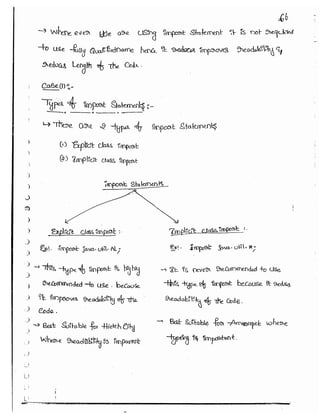 66
→ Whenever we are using import Statement it is not required
to use fully Qualified name hence it reduces improves readability &
reduces Length of the Code.
Case(1):-
Types of import Statements:-
↳ There are 2 types of import Statements
(1) Explicit class import
(2) Implicit class import
import Statements
Explicit class import :
Implicit class import :
Ex: import java.util.AL;
Ex: import java.util.*;
→ This type of import is highly
→ It is never recommended to use
recommended to use. because
this type of import because it reduces
it improves readability of the
readability of the code.
code.
→ Best Suitable for Hitech City
→ Best Suitable for Ameerpet where
where readability is important
typing is important.